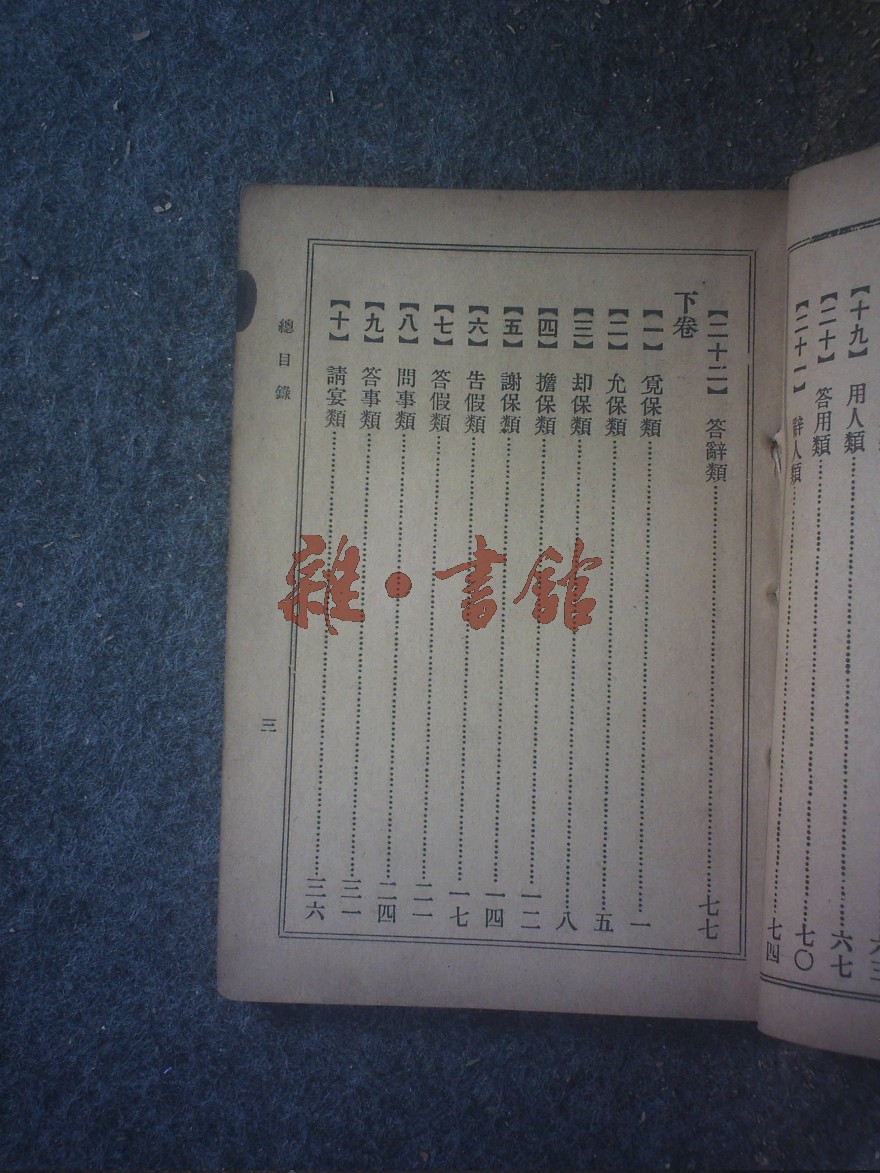 【十九】 用人類
六三
【二十】 答用類……六七
【二十一】 辭人類……七〇
七四
【二十二】 答辭類……七七
下卷
【一】 覓保類……一
【二】 允保類……五
【三】 却保類……八
【四】 擔保類……一二
【五】 謝保類……一四
【六】 告假類……一七
【七】 答假類……二一
【八】 問事類……二四
【九】 答事類……三一
【十】 請宴類……三六
總目錄
三
雜·書館